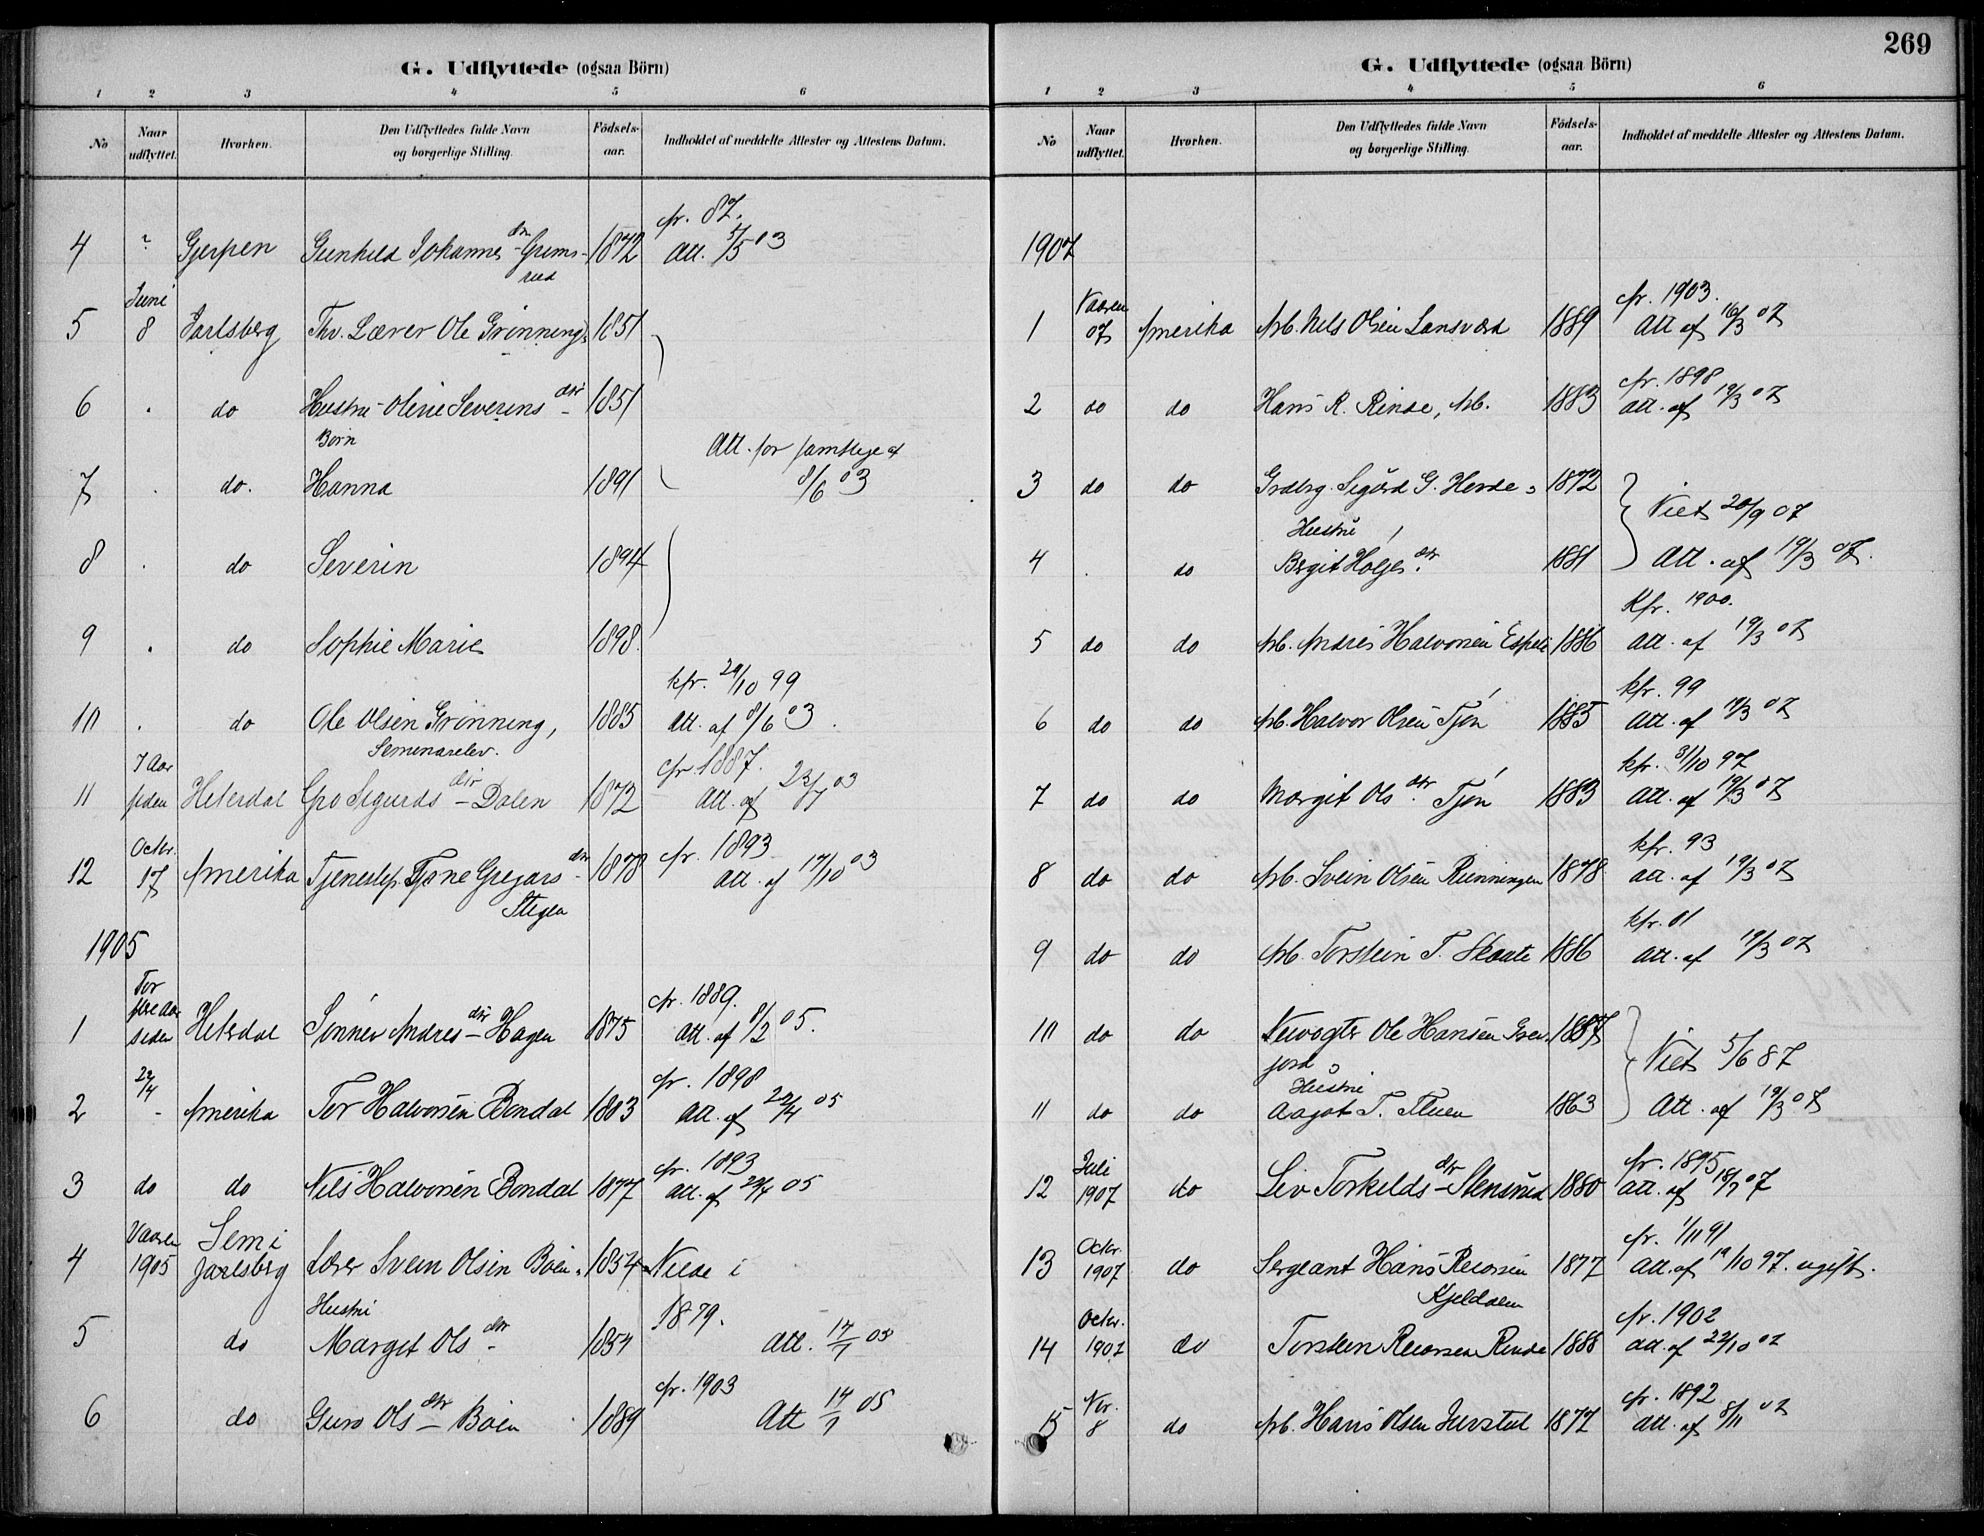 G. Udflyttede (ogsaa Börn)
1 2 3 4 5 6
No Naar udflyttet. Hvorhen. Den Udflyttedes fulde Navn og borgerlige Stilling. Födsels-aar. Indholdet af meddelte Attester og Attestens Datum.
cfr. 87.
4 " Gjerpen Gunhild Johannes dtr - Grims- 1872 Att. 5/5 03
rud
Juni
5 8 Jarlsberg Fhv. Lærer Ole Grönning, 1851
6 . do Hustru - Oline Severins dtr - 1851
Børn
Att. for samtlige af
7 . do. Hanna 1891 8/6 03
8 . do Severin 1894
9 . do Sophie Marie 1898.
kfr. 29/10 99
10 . do Ole Olsen Grönning, 1885 Att. af 8/6 03.
Seminarelev.
7 Aar cfr 1887.
11 siden Hiterdal Gro Sigurds dtr - Dalen 1872 Att. af 23/7 03
Octbr. cfr. 1893
12 17 Amerika Tjenestep. Tjøne Gregars dtr - 1878 Att. af 17/10 03
Stigen
1905
For
flere Aar cfr. 1889.
1 siden Hiterdal Sønnev Andres dtr - Hagen 1875 Att. af 8/2 05.
22/4 cfr. 1898
2 - Amerika Tor Halvorsen Bondal 1883 Att. af 22/4 05
cfr. 1893
3 do do Nils Halvorsen Bondal 1877 Att. af 22/4 05
Vaaren Sem i
4 1905 Jarlsberg Lærer Svein Olsen Bøen. 1854 Viede i
Hustru 1879.
5 do Margit Ols dtr - 1854 Att. 14/7 05
cfr. 1903
6 do Guro Ols dtr - Bøen 1889 Att 14/7 05
269
G. Udflyttede (ogsaa Börn)
1 2 3 4 5 6
No Naar udflyttet. Hvorhen. Den Udflyttedes fulde Navn og borgerlige Stilling. Födsels-aar. Indholdet af meddelte Attester og Attestens Datum.
1907
Vaaren cfr. 1903.
1 07 Amerika Arb. Nils Olsen Lansværd 1889 Att af 16/3 07
cfr. 1898
2 do do Hans R. Rinde, Arb. 1883 Att. af 19/3 07
3 do do Grdbrg. Sigurd G. Herde 1872 Viet 20/9 07
Hustru
4 . do Birgit Holjes dtr 1881 Att. af 19/3 07.
Kfr. 1900.
5 do do Arb. Andres Halvorsen Espeli 1886 Att. af 19/3 07
kfr. 99
6 do do Arb. Halvor Olsen Tjøn 1885 Att. af 19/3 07
kfr. 31/10 97
7 do do Margit Ols dtr. Tjøn 1883 Att. af 19/3 07
kfr. 93
8 do do Arb. Svein Olsen Rünningen 1878 Att. af 19/3 07
kfr. 01
9 do do Arb. Torstein T. Skaate 1886 Att. af 19/3 07
10 do do Ole Hansen 1887 Viet 5/6 87
jord
Hustru
11 do do Aagot T. Fluen 1863 Att. af 19/3 07
Juli cfr. 1895
12 1907 do Liv Torkelds dtr - Stensrud 1880 Att. af 18/7 07
Octbr. cfr. 1/11 91
13 1907 do Sergeant Hans Reiersen 1877 Att. af 19/10 97. ugift.
Kjeldalen
Octbr. cfr. 1902
14 1907 do Torstein Reiersen Rinde 1888 Att. af 22/10 07
Nvr. cfr. 1892
15 8 do Arb. Hans Olsen Jurstul 1877 Att. af 8/11 07